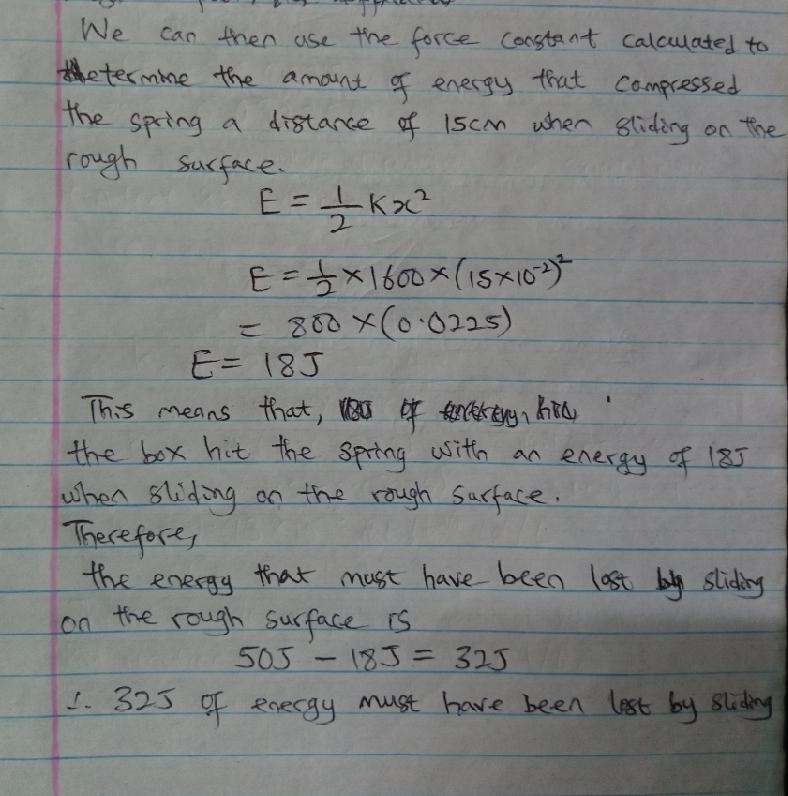 We can then use the force constant calculated to
determine the amount of energy that compressed
the spring a distance of 15cm when sliding on the
rough surface.
E = 1/2 Kx²
E = 1/2 × 1600 × (15×10⁻²)²
= 800 × (0.0225)
E = 18J
This means that,
the box hit the spring with an energy of 18J
when sliding on the rough surface.
Therefore,
the energy that must have been lost by sliding
on the rough surface is
50J - 18J = 32J
∴ 32J of energy must have been lost by sliding